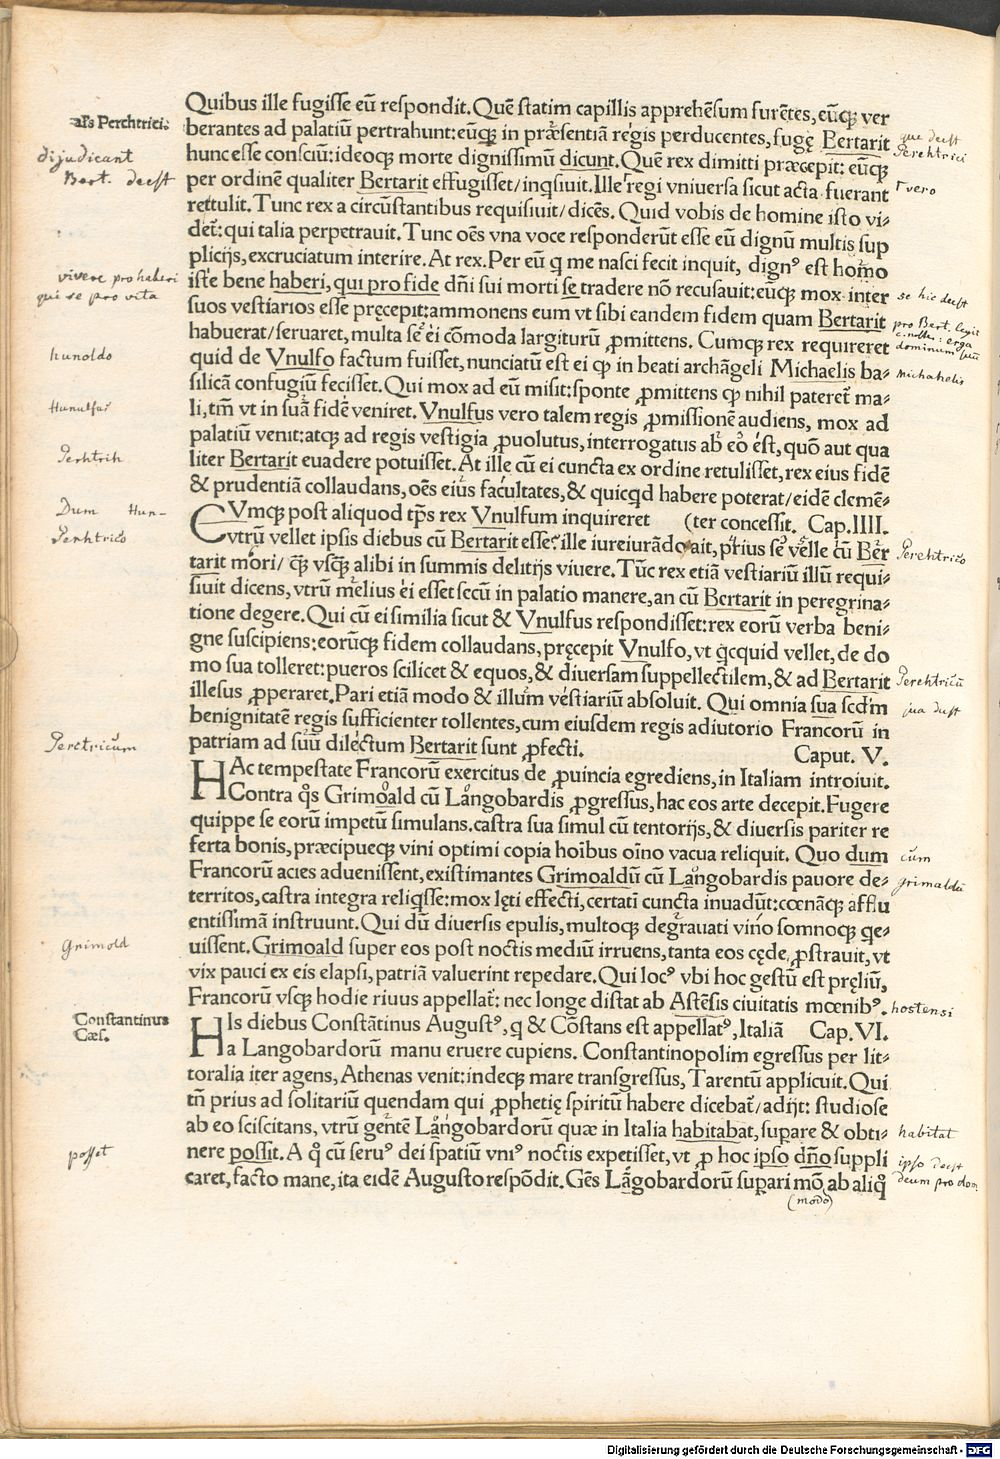 Quibus ille fugisse eū respondit. Quē statim capillis apprehēsum furētes, eūq; ver
berantes ad palatiū pertrahunt: eūq; in præsentiā regis perducentes, fugę Bertarit
hunc esse consciū: ideoq; morte dignissimū dicunt. Quē rex dimitti præcepit: eūq;
per ordinē qualiter Bertarit effugisset/ inq̄siuit. Ille regi vniuersa sicut acta fuerant
rettulit. Tunc rex a circūstantibus requisiuit/ dicēs. Quid vobis de homine isto vi⸗
det̄: qui talia perpetrauit. Tunc oēs vna voce responderūt esse eū dignū multis sup
plicijs, excruciatum interire. At rex. Per eū q me nasci fecit inquit, dignꝰ est homo
iste bene haberi, qui pro fide dn̄i sui morti se tradere nō recusauit: eūq; mox inter
suos vestiarios esse pręcepit: ammonens eum vt sibi eandem fidem quam Bertarit
habuerat/ seruaret, multa se ei cōmoda largiturū ꝓmittens. Cumq; rex requireret
quid de Vnulfo factum fuisset, nunciatū est ei ꝙ in beati archāgeli Michaelis ba⸗
silicā confugiū fecisset. Qui mox ad eū misit: sponte ꝓmittens ꝙ nihil pateret̄ ma⸗
li, tm̄ vt in suā fidē veniret. Vnulfus vero talem regis ꝓmissionē audiens, mox ad
palatiū venit: atq; ad regis vestigia ꝓuolutus, interrogatus ab eo est, quō aut qua
liter Bertarit euadere potuisset. At ille cū ei cuncta ex ordine retulisset, rex eius fidē
& prudentiā collaudans, oēs eius facultates, & quicqd habere poterat/ eidē clemē⸗
CVmq; post aliquod tp̄s rex Vnulfum inquireret (ter concessit. Cap. IIII.
vtrū vellet ipsis diebus cū Bertarit esse: ille iureiurādo ait, prius se velle cū Ber
tarit mori/ q̄ vsq̄ alibi in summis delitijs viuere. Tūc rex etiā vestiariū illū requi⸗
siuit dicens, vtrū melius ei esset secū in palatio manere, an cū Bertarit in peregrina⸗
tione degere. Qui cū ei similia sicut & Vnulfus respondisset: rex eorū verba beni⸗
gne suscipiens: eorūq; fidem collaudans, pręcepit Vnulfo, vt qcquid vellet, de do
mo sua tolleret: pueros scilicet & equos, & diuersam suppellectilem, & ad Bertarit
illesus ꝓperaret. Pari etiā modo & illum vestiariū absoluit. Qui omnia sua scd̄m
benignitatē regis sufficienter tollentes, cum eiusdem regis adiutorio Francorū in
patriam ad suū dilectum Bertarit sunt ꝓfecti. Caput. V.
HAc tempestate Francorū exercitus de ꝓuincia egrediens, in Italiam introiuit.
Contra qos Grimoald cū Langobardis ꝓgressus, hac eos arte decepit. Fugere
quippe se eorū impetū simulans. castra sua simul cū tentorijs, & diuersis pariter re
ferta bonis, præcipueq; vini optimi copia hoībus oīno vacua reliquit. Quo dum
Francorū acies aduenissent, existimantes Grimoaldū cū Langobardis pauore de⸗
territos, castra integra reliqsse: mox lęti effecti, certatī cuncta inuadūt: cœnāq; afflu
entissimā instruunt. Qui dū diuersis epulis, multoq; degrauati vino somnoq; qe⸗
uissent. Grimoald super eos post noctis mediū irruens, tanta eos cęde, ꝓstrauit, vt
vix pauci ex eis elapsi, patriā valuerint repedare. Qui locꝰ vbi hoc gestū est pręliū,
Francorū vsq; hodie riuus appellat̄: nec longe distat ab Astēsis ciuitatis mœnibꝰ.
HIs diebus Constātinus Augustꝰ, q & Cōstans est appellatꝰ, Italiā Cap. VI.
a Langobardorū manu eruere cupiens. Constantinopolim egressus per lit⸗
toralia iter agens, Athenas venit: indeq; mare transgressus, Tarentū applicuit. Qui
tn̄ prius ad solitariū quendam qui ꝓphetię spiritū habere dicebat̄/ adijt: studiose
ab eo sciscitans, vtrū gentē Langobardorū quæ in Italia habitabat, supare & obti⸗
nere possit. A q cū seruꝰ dei spatiū vniꝰ noctis expetisset, vt ꝓ hoc ipso dn̄o suppli
caret, facto mane, ita eidē Augusto respōdit. Gēs Langobardorū supari mō ab aliq
(modo)
als Perchtrici.
dijudicant
Bert. deest
vivere pro haberi
qui se pro vita
hunoldo
Hunulfus
Perhtrih
Dum Hun-
Perhtrico
Perctricum
Grimold
Constantinus
Cæs.
posset
que deest
Perchtrici
vero
se hic deest
pro Bert. legit
erga
dominum suū
Michahelis
Perchtrico
Perchtricū
sua deest
cum
Grimaldū
hostensi
habitat
ipso deest
deum pro dom.
Digitalisierung gefördert durch die Deutsche Forschungsgemeinschaft - DFG